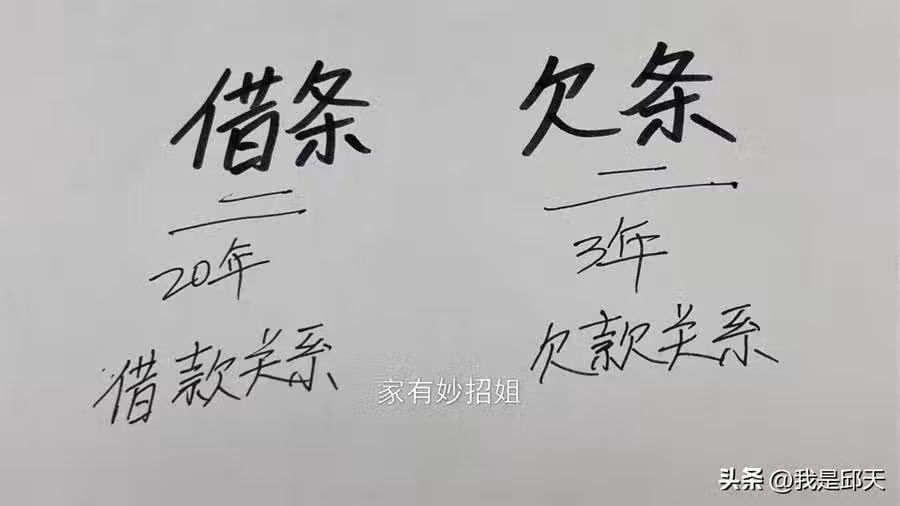 借条
欠条
20年
3年
借款关系
欠款关系
家有妙招姐
头条 @我是邱天